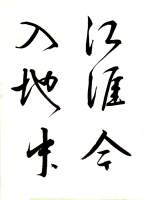 江淮今
入地